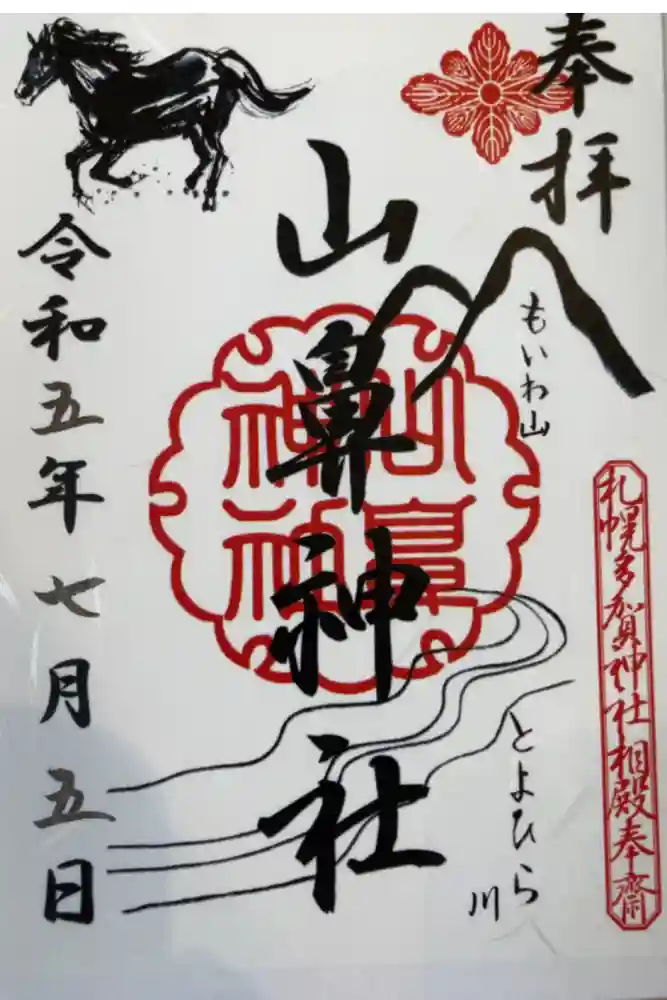 奉拝
もいわ山
とよひら川
札幌多賀神社相殿奉齋
山鼻神社
山鼻神社
令和五年七月五日